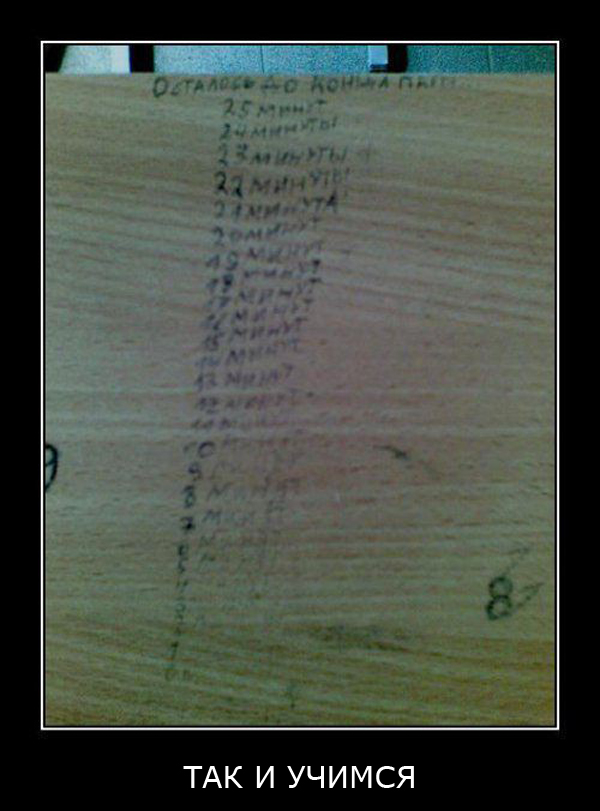 ОСТАЛОСЬ ДО КОНЦА ПАРЫ
25 МИНУТ
24 МИНУТЫ
23 МИНУТЫ
22 МИНУТЫ
21 МИНУТА
20 МИНУТ
19 МИНУТ
18 МИНУТ
17 МИНУТ
16 МИНУТ
15 МИНУТ
14 МИНУТ
13 МИНУТ
12 МИНУТ
11 МИНУТ
10 МИНУТ
9
8 МИНУТ
7 МИНУТ
9
8
ТАК И УЧИМСЯ